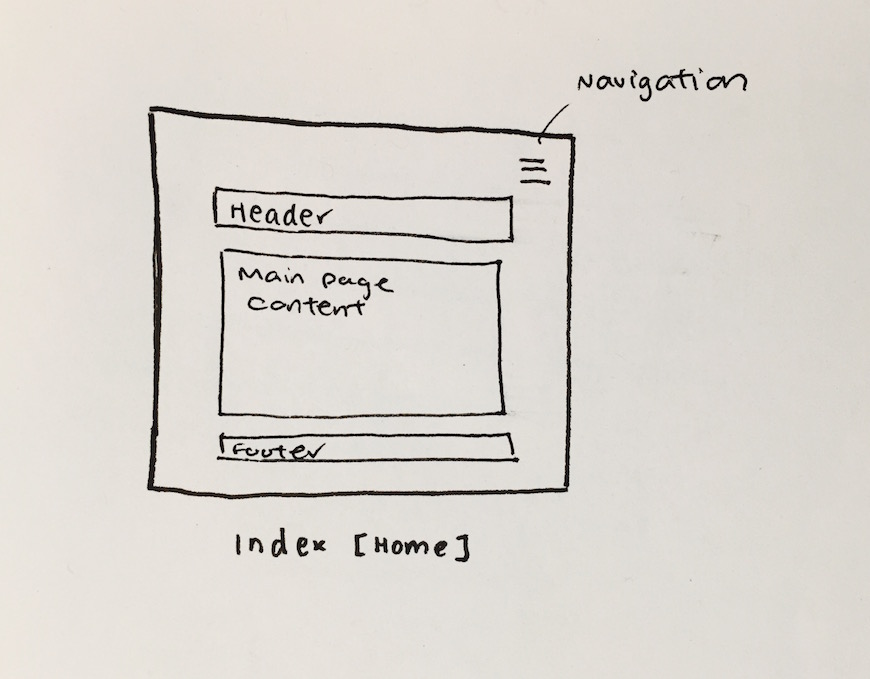 Navigation
Header
Main page
content
Footer
Index [Home]